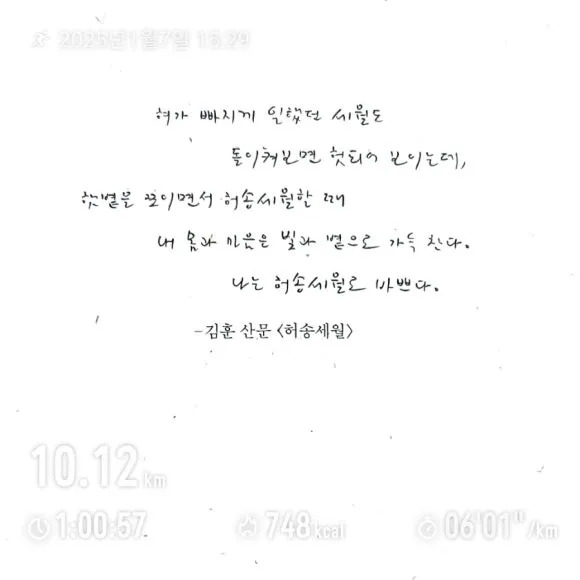 2025년1월7일 15:29
혀가 빠지게 일했던 세월도
돌이켜보면 헛되어 보이는데,
햇볕을 쪼이면서 허송세월할 때
내 몸과 마음은 빛과 볕으로 가득 찬다.
나는 허송세월로 바쁘다.
-김훈 산문 〈허송세월〉
10.12 km
1:00:57 748 kcal 06'01"/km